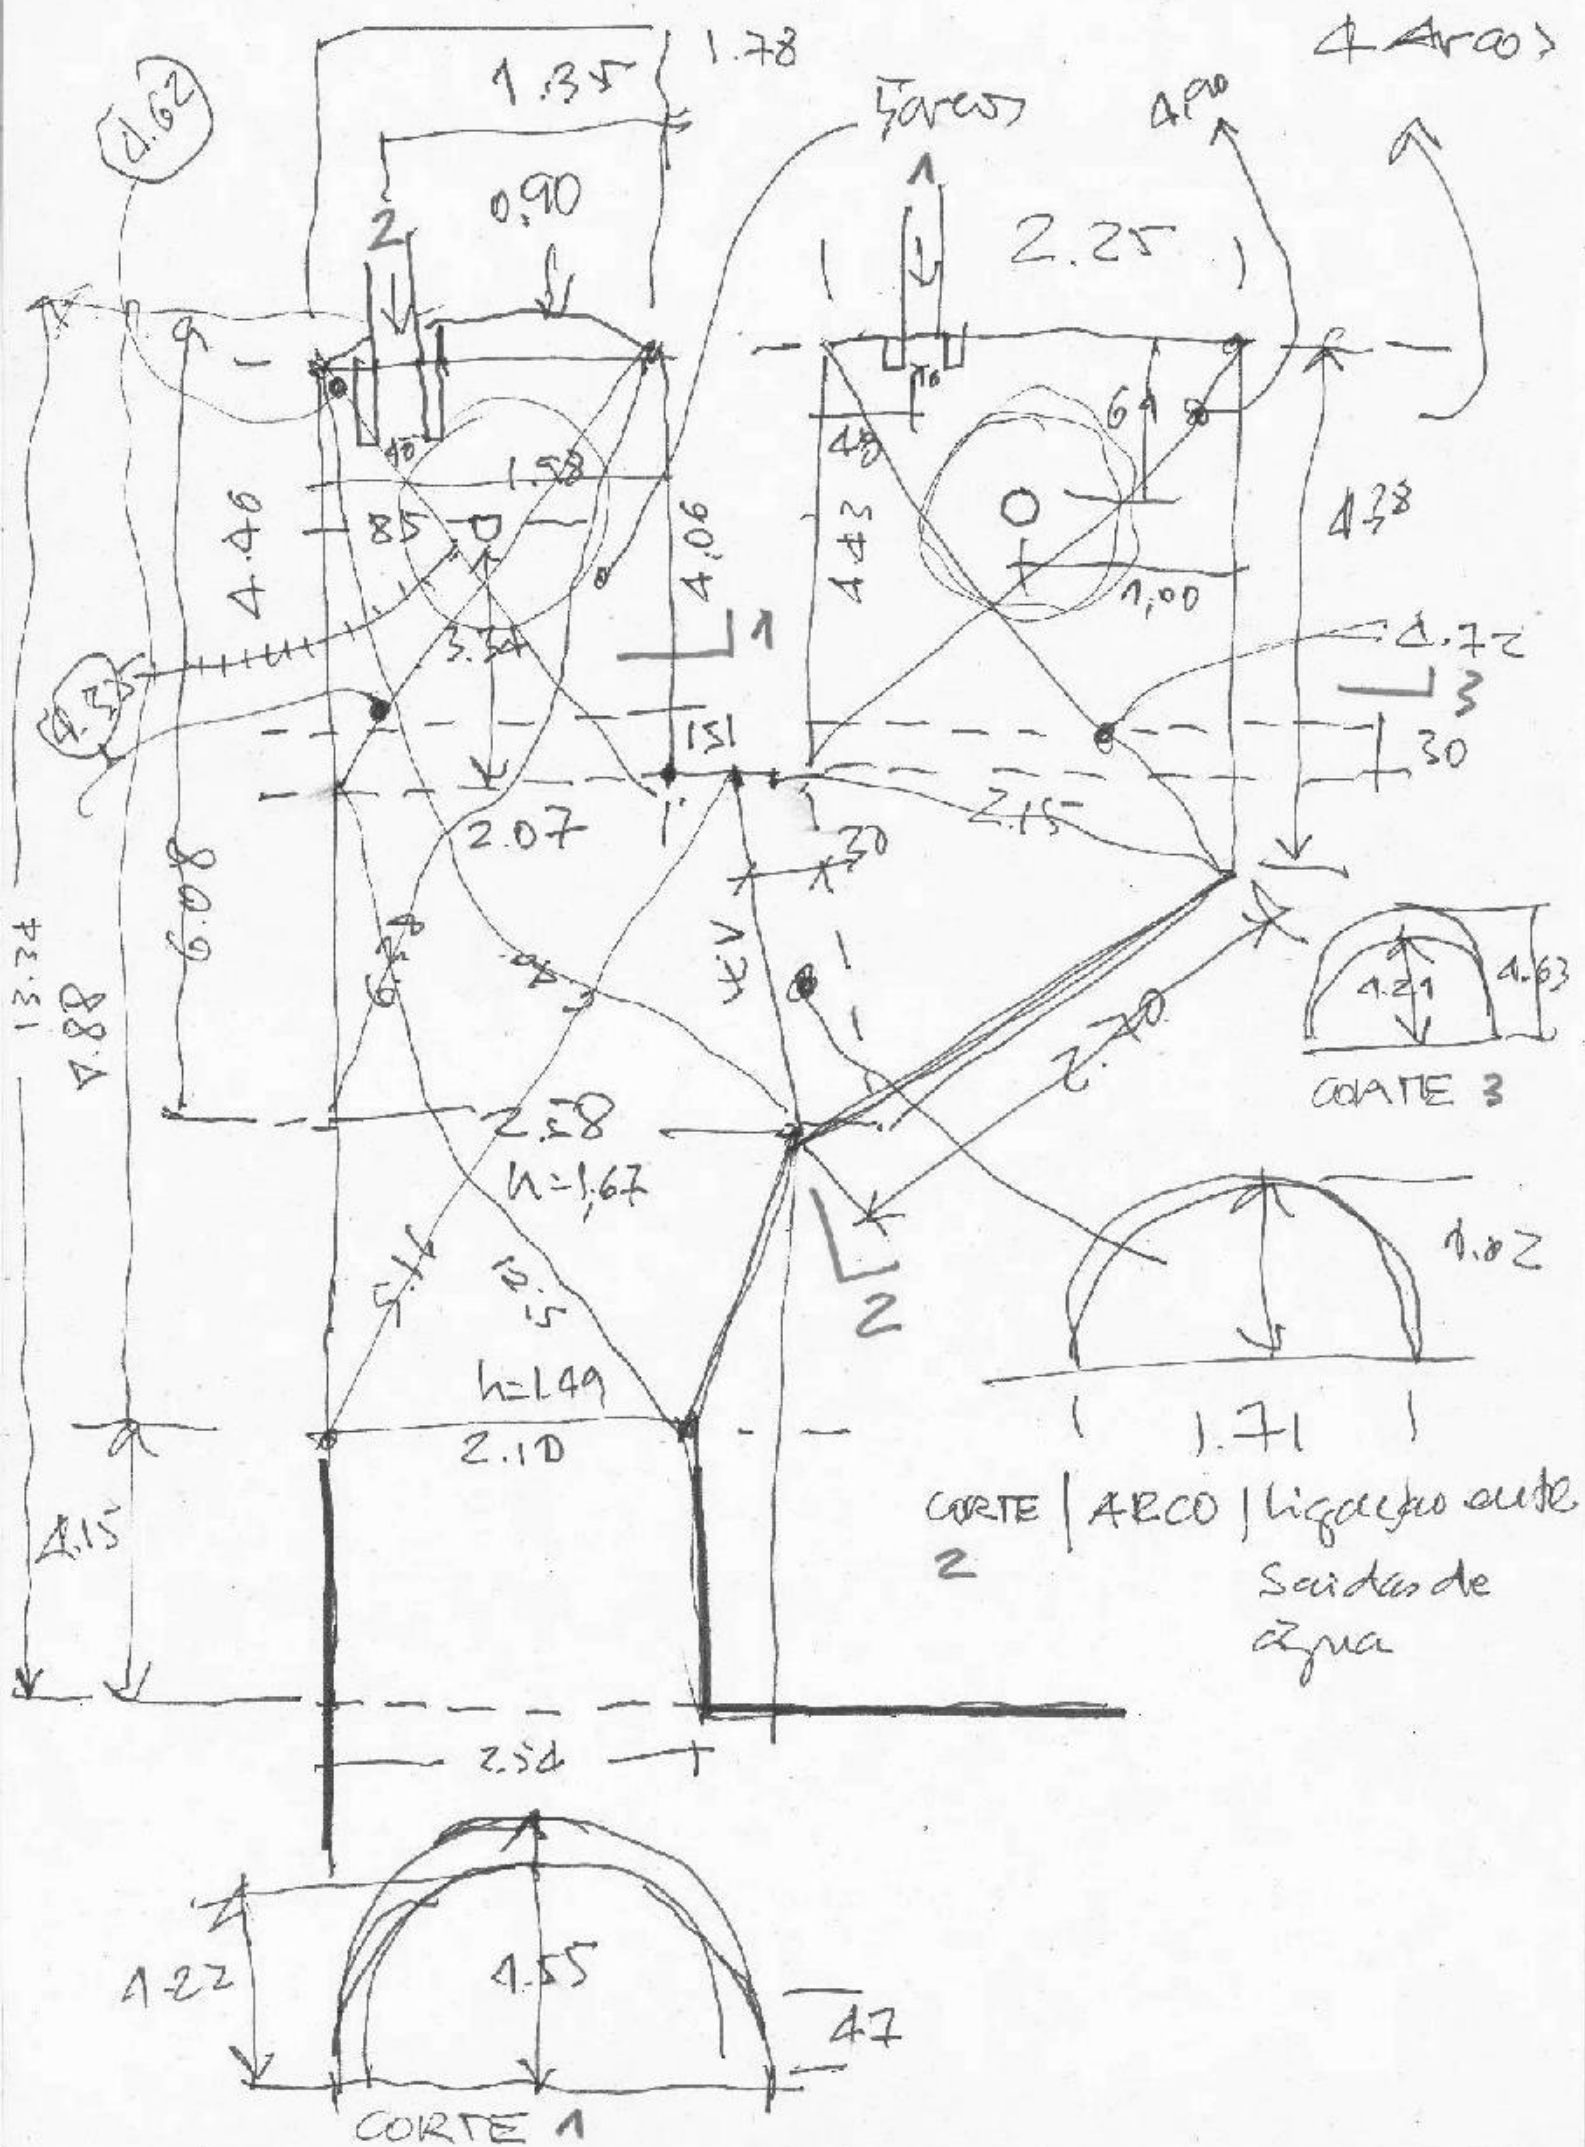 1.78
4 Arcos
1.35
5 arcos
1.62
0,90
2
1
2.25
40
48
64
1.98
85
4.46
4.06
4.43
4.38
1,00
3.34
1
1.72
3
1.35
151
30
2.07
2.15
30
6.08
13.34
4.88
1.21
1.63
2.70
CORTE 3
2.58
h=1,67
2
1.02
h=1.49
2.10
1.71
CORTE | ARCO | Ligação entre
2
Saidas de
água
4.15
2.54
1.22
1.55
47
CORTE 1